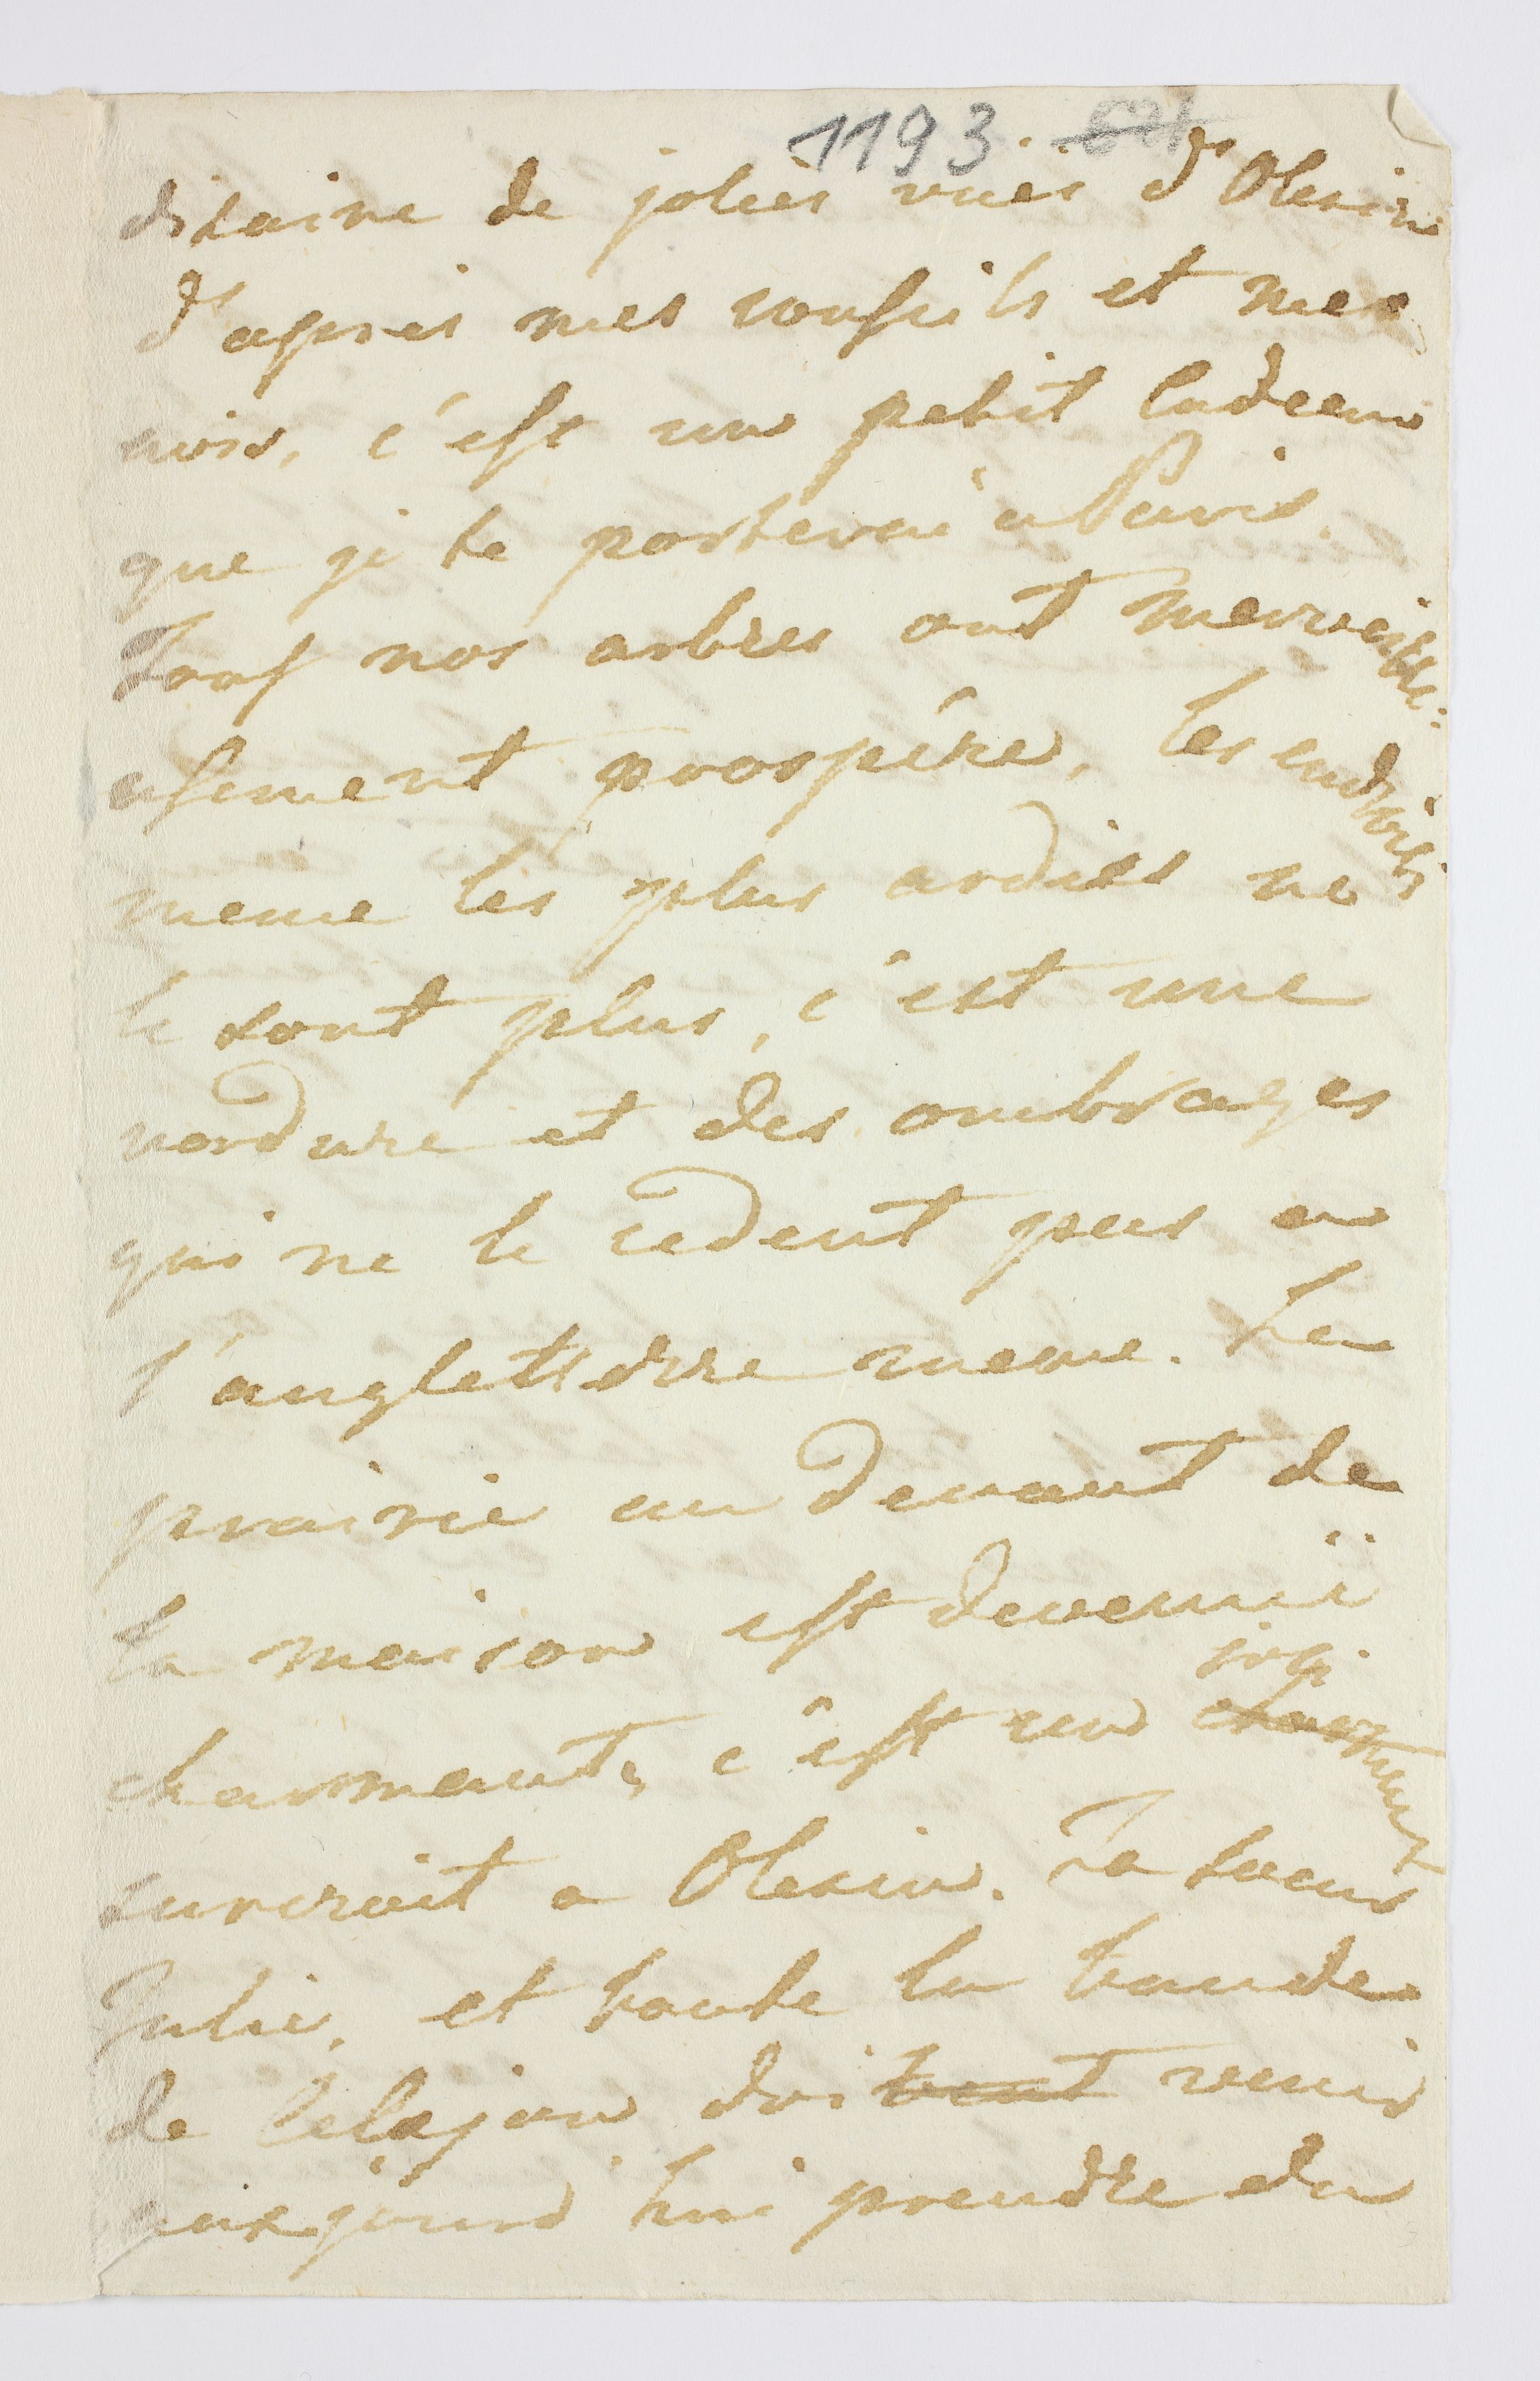 1193
disaine de jolies vuës d'Olesin
d'apres mes conseils et mes
c'est un petit cadeau
que je te porterai a Paris.
Tous nos arbres ont merveille:
usement prospéré, les endroits
meme les plus arides ne
le sont plus, c'est une
verdure et des ombrages
qui ne le cedent pas a
l'angletterre meme. La
prairie au devant de
la maison est devenuë
charmante, c'est un joli charmant
surcroit a Olesin. Ta soeur
Julie, et toute la bande
de doivent venir
aujourd'hui prendre du